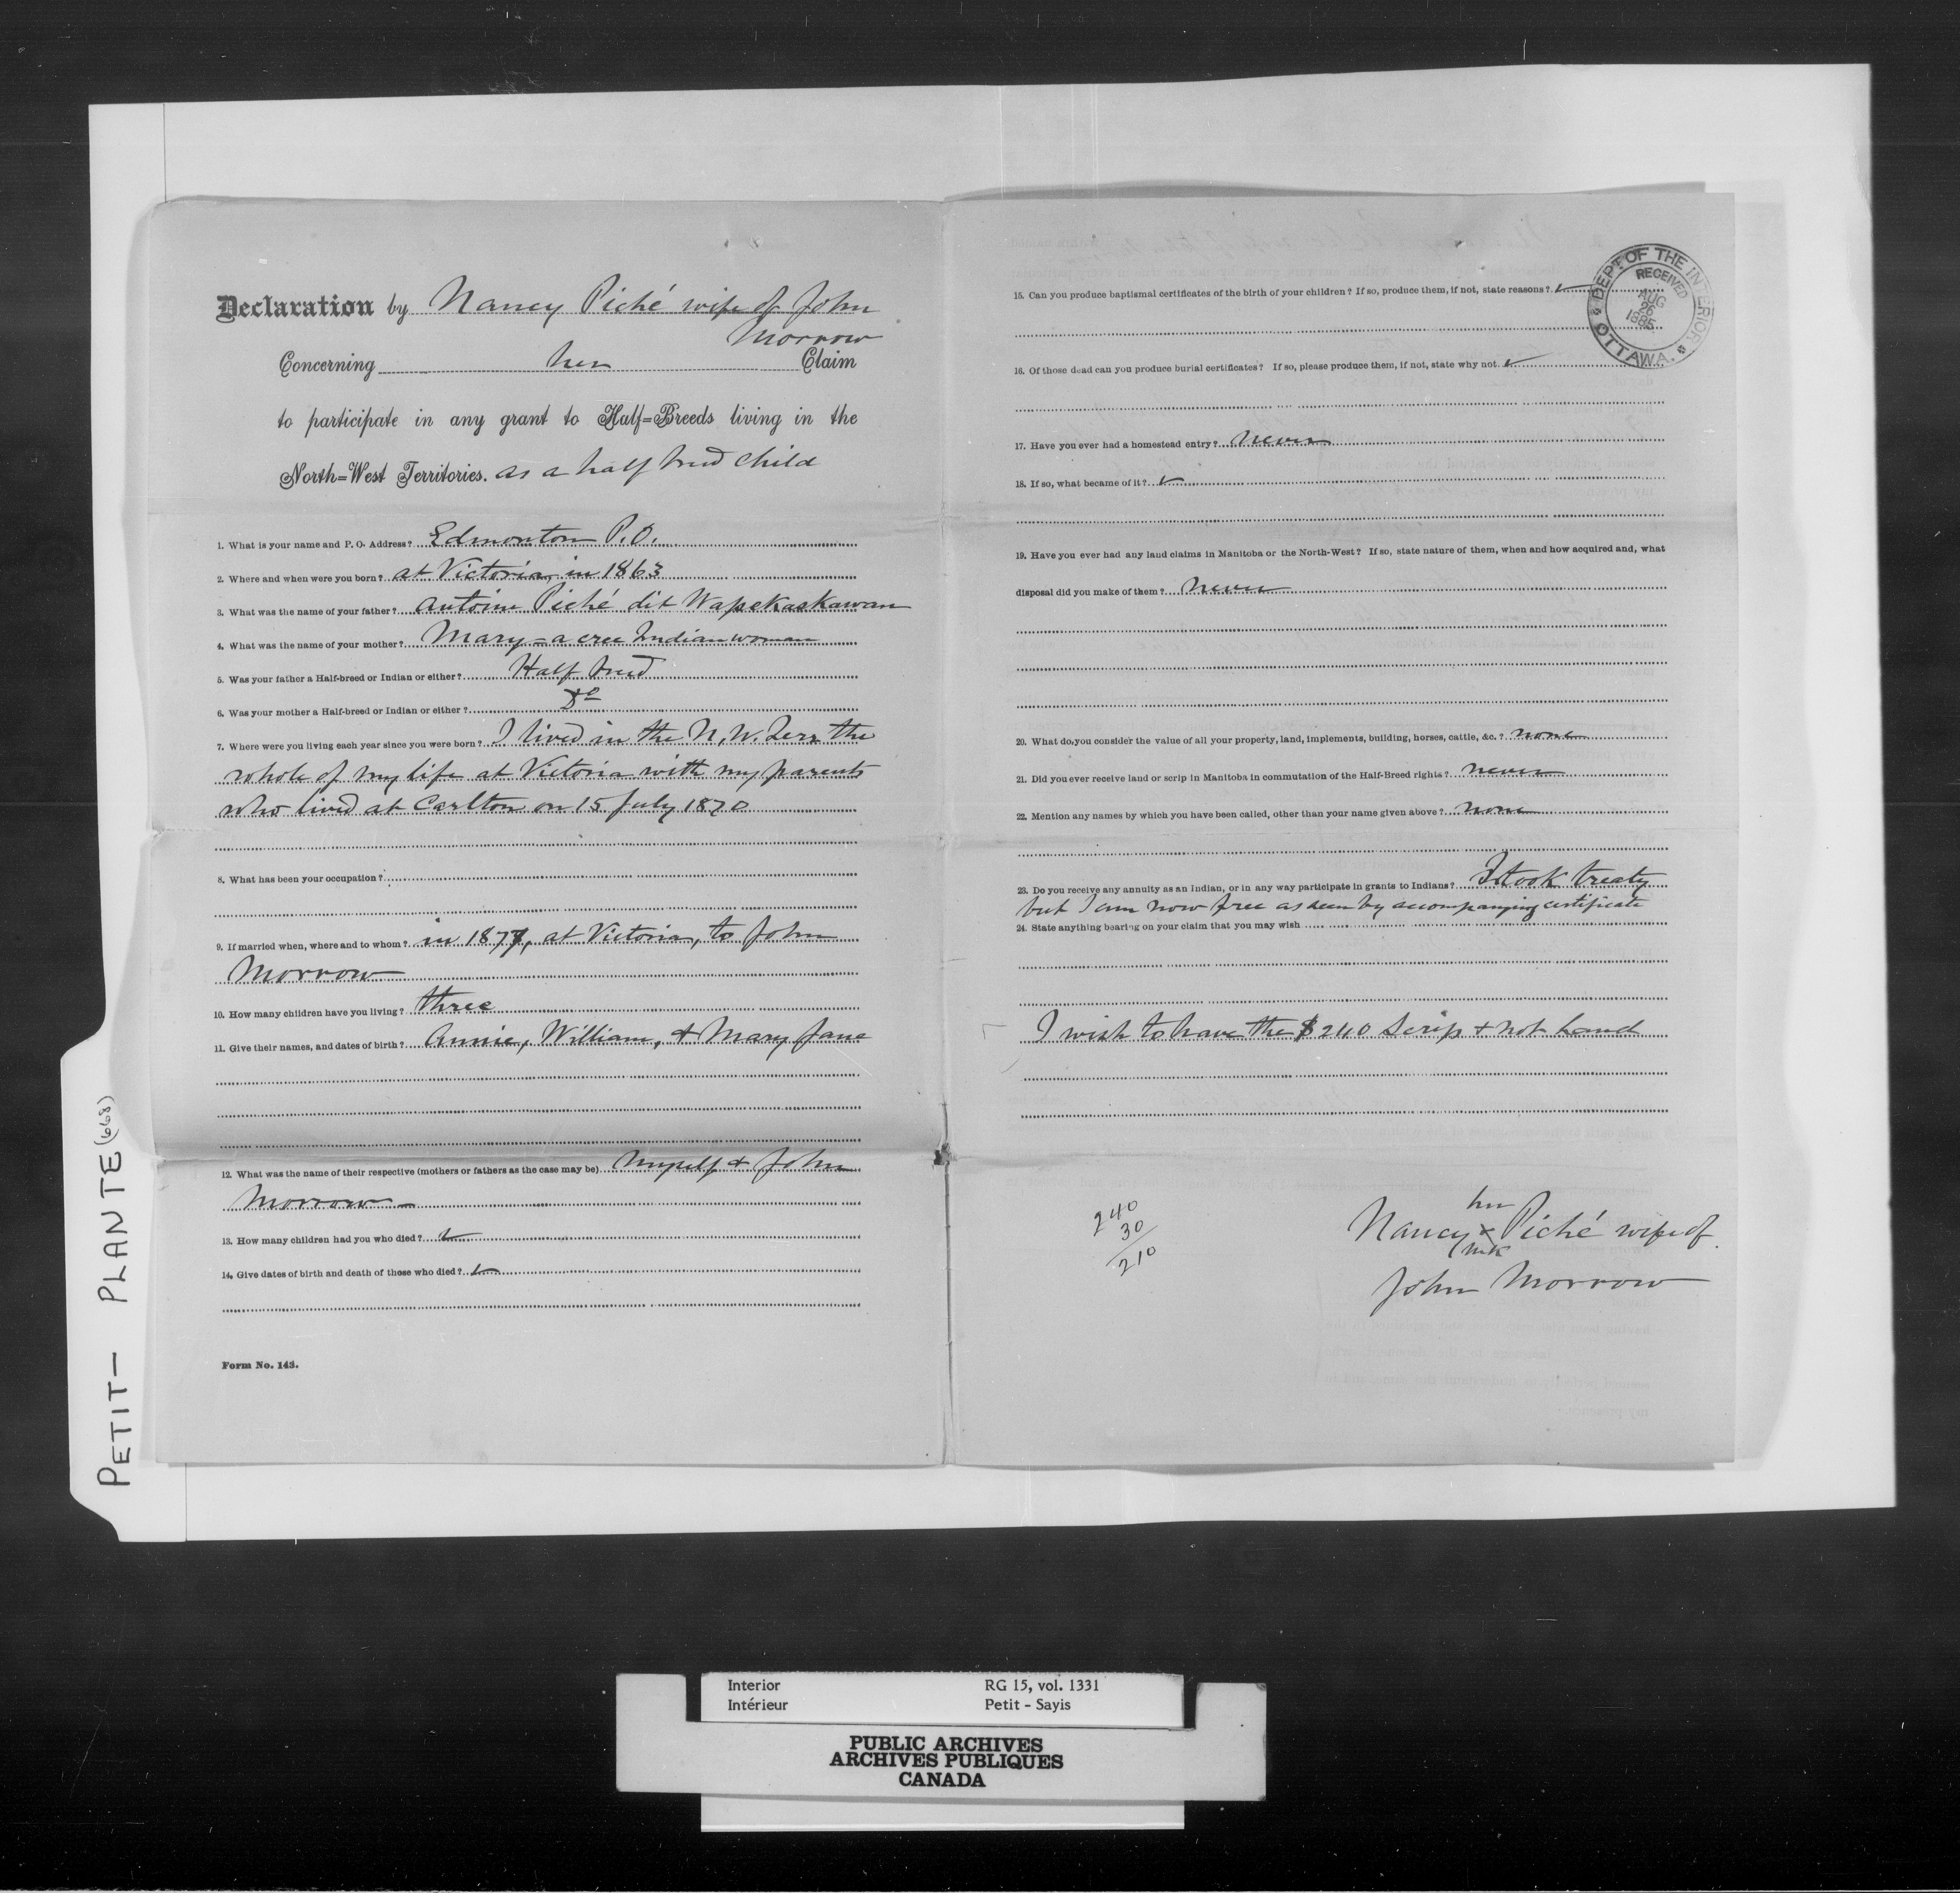 Declaration by Nancy Piché wife of John
Morrow
Concerning her Claim
to participate in any grant to Half=Breeds living in the
North=West Territories. as a half breed child
1. What is your name and P. O. Address? Edmonton P.O.
2. Where and when were you born? at Victoria, in 1863
3. What was the name of your father? Antoine Piché dit Wapekaskawan
4. What was the name of your mother? Mary = a cree Indian woman
5. Was your father a Half-breed or Indian or either? Half breed
6. Was your mother a Half-breed or Indian or either? Do
7. Where were you living each year since you were born? I lived in the N. W. Terr the
whole of my life at Victoria with my parents
who lived at Carlton on 15 July 1870
8. What has been your occupation?
9. If married when, where and to whom? in 1877, at Victoria, to John
Morrow
10. How many children have you living? three
11. Give their names, and dates of birth? Annie, William, & Mary Jane
12. What was the name of their respective (mothers or fathers as the case may be) Myself & John
Morrow —
13. How many children had you who died? ✓
14. Give dates of birth and death of those who died? ✓
Form No. 143.
15. Can you produce baptismal certificates of the birth of your children? If so, produce them, if not, state reasons? ✓
16. Of those dead can you produce burial certificates? If so, please produce them, if not, state why not. ✓
17. Have you ever had a homestead entry? never
18. If so, what became of it? ✓
19. Have you ever had any land claims in Manitoba or the North-West? If so, state nature of them, when and how acquired and, what
disposal did you make of them? never
20. What do you consider the value of all your property, land, implements, building, horses, cattle, &c.? none
21. Did you ever receive land or scrip in Manitoba in commutation of the Half-Breed rights? never
22. Mention any names by which you have been called, other than your name given above? none
23. Do you receive any annuity as an Indian, or in any way participate in grants to Indians? I took treaty
but I am now free as seen by accompanying certificate
24. State anything bearing on your claim that you may wish
I wish to have the $240 Scrip & not land
240
30
210
her
Nancy x Piché wife of
mk
John Morrow
DEPT. OF THE INTERIOR
RECEIVED
AUG
26
1885
OTTAWA.
PETIT — PLANTE (668)
Interior RG 15, vol. 1331
Intérieur Petit - Sayis
PUBLIC ARCHIVES
ARCHIVES PUBLIQUES
CANADA